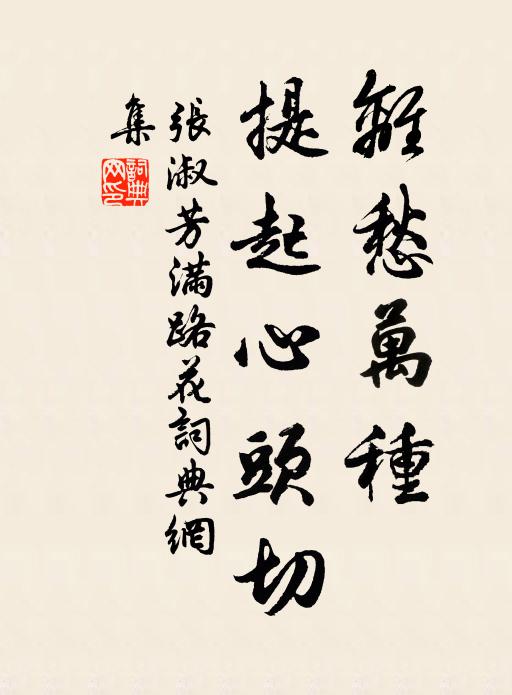 離愁萬種
提起心頭切
張淑芳滿路花詞典網
集
詞典
網印